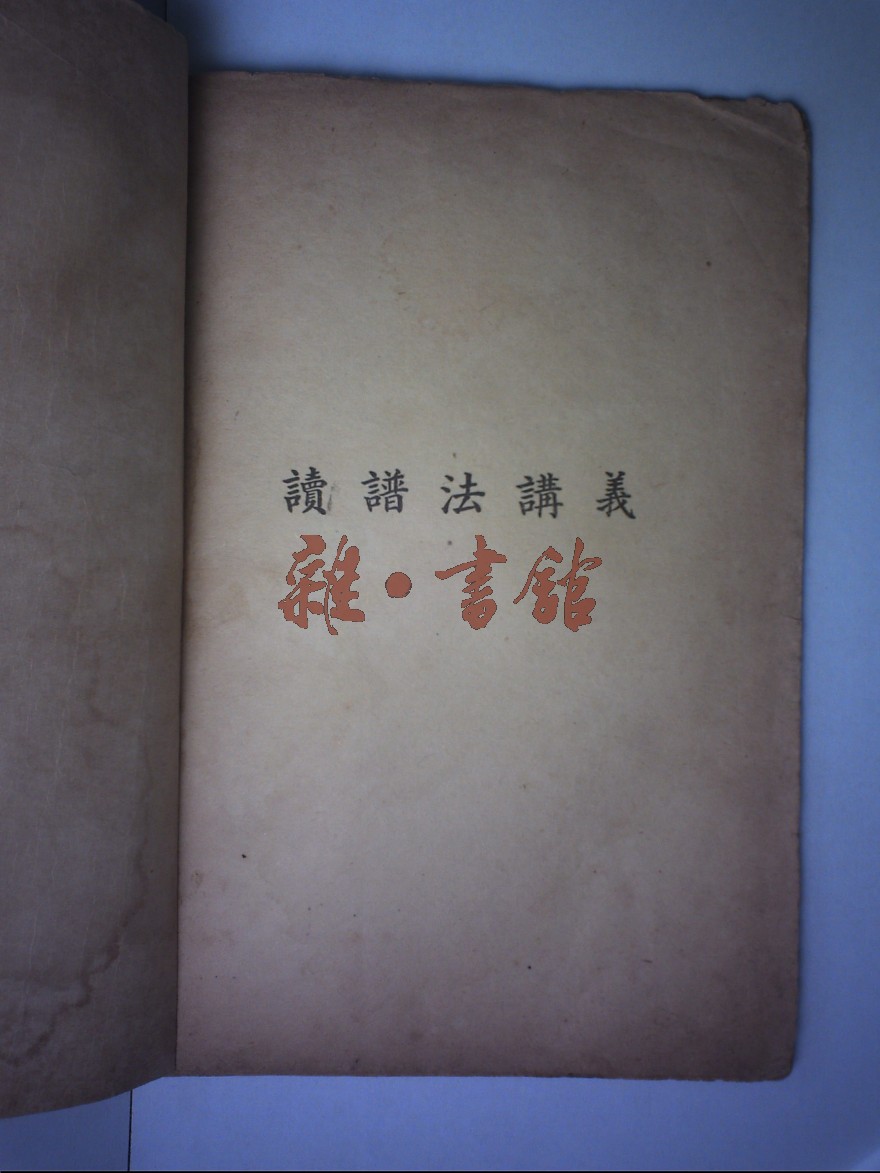 讀譜法講義
雜·書館